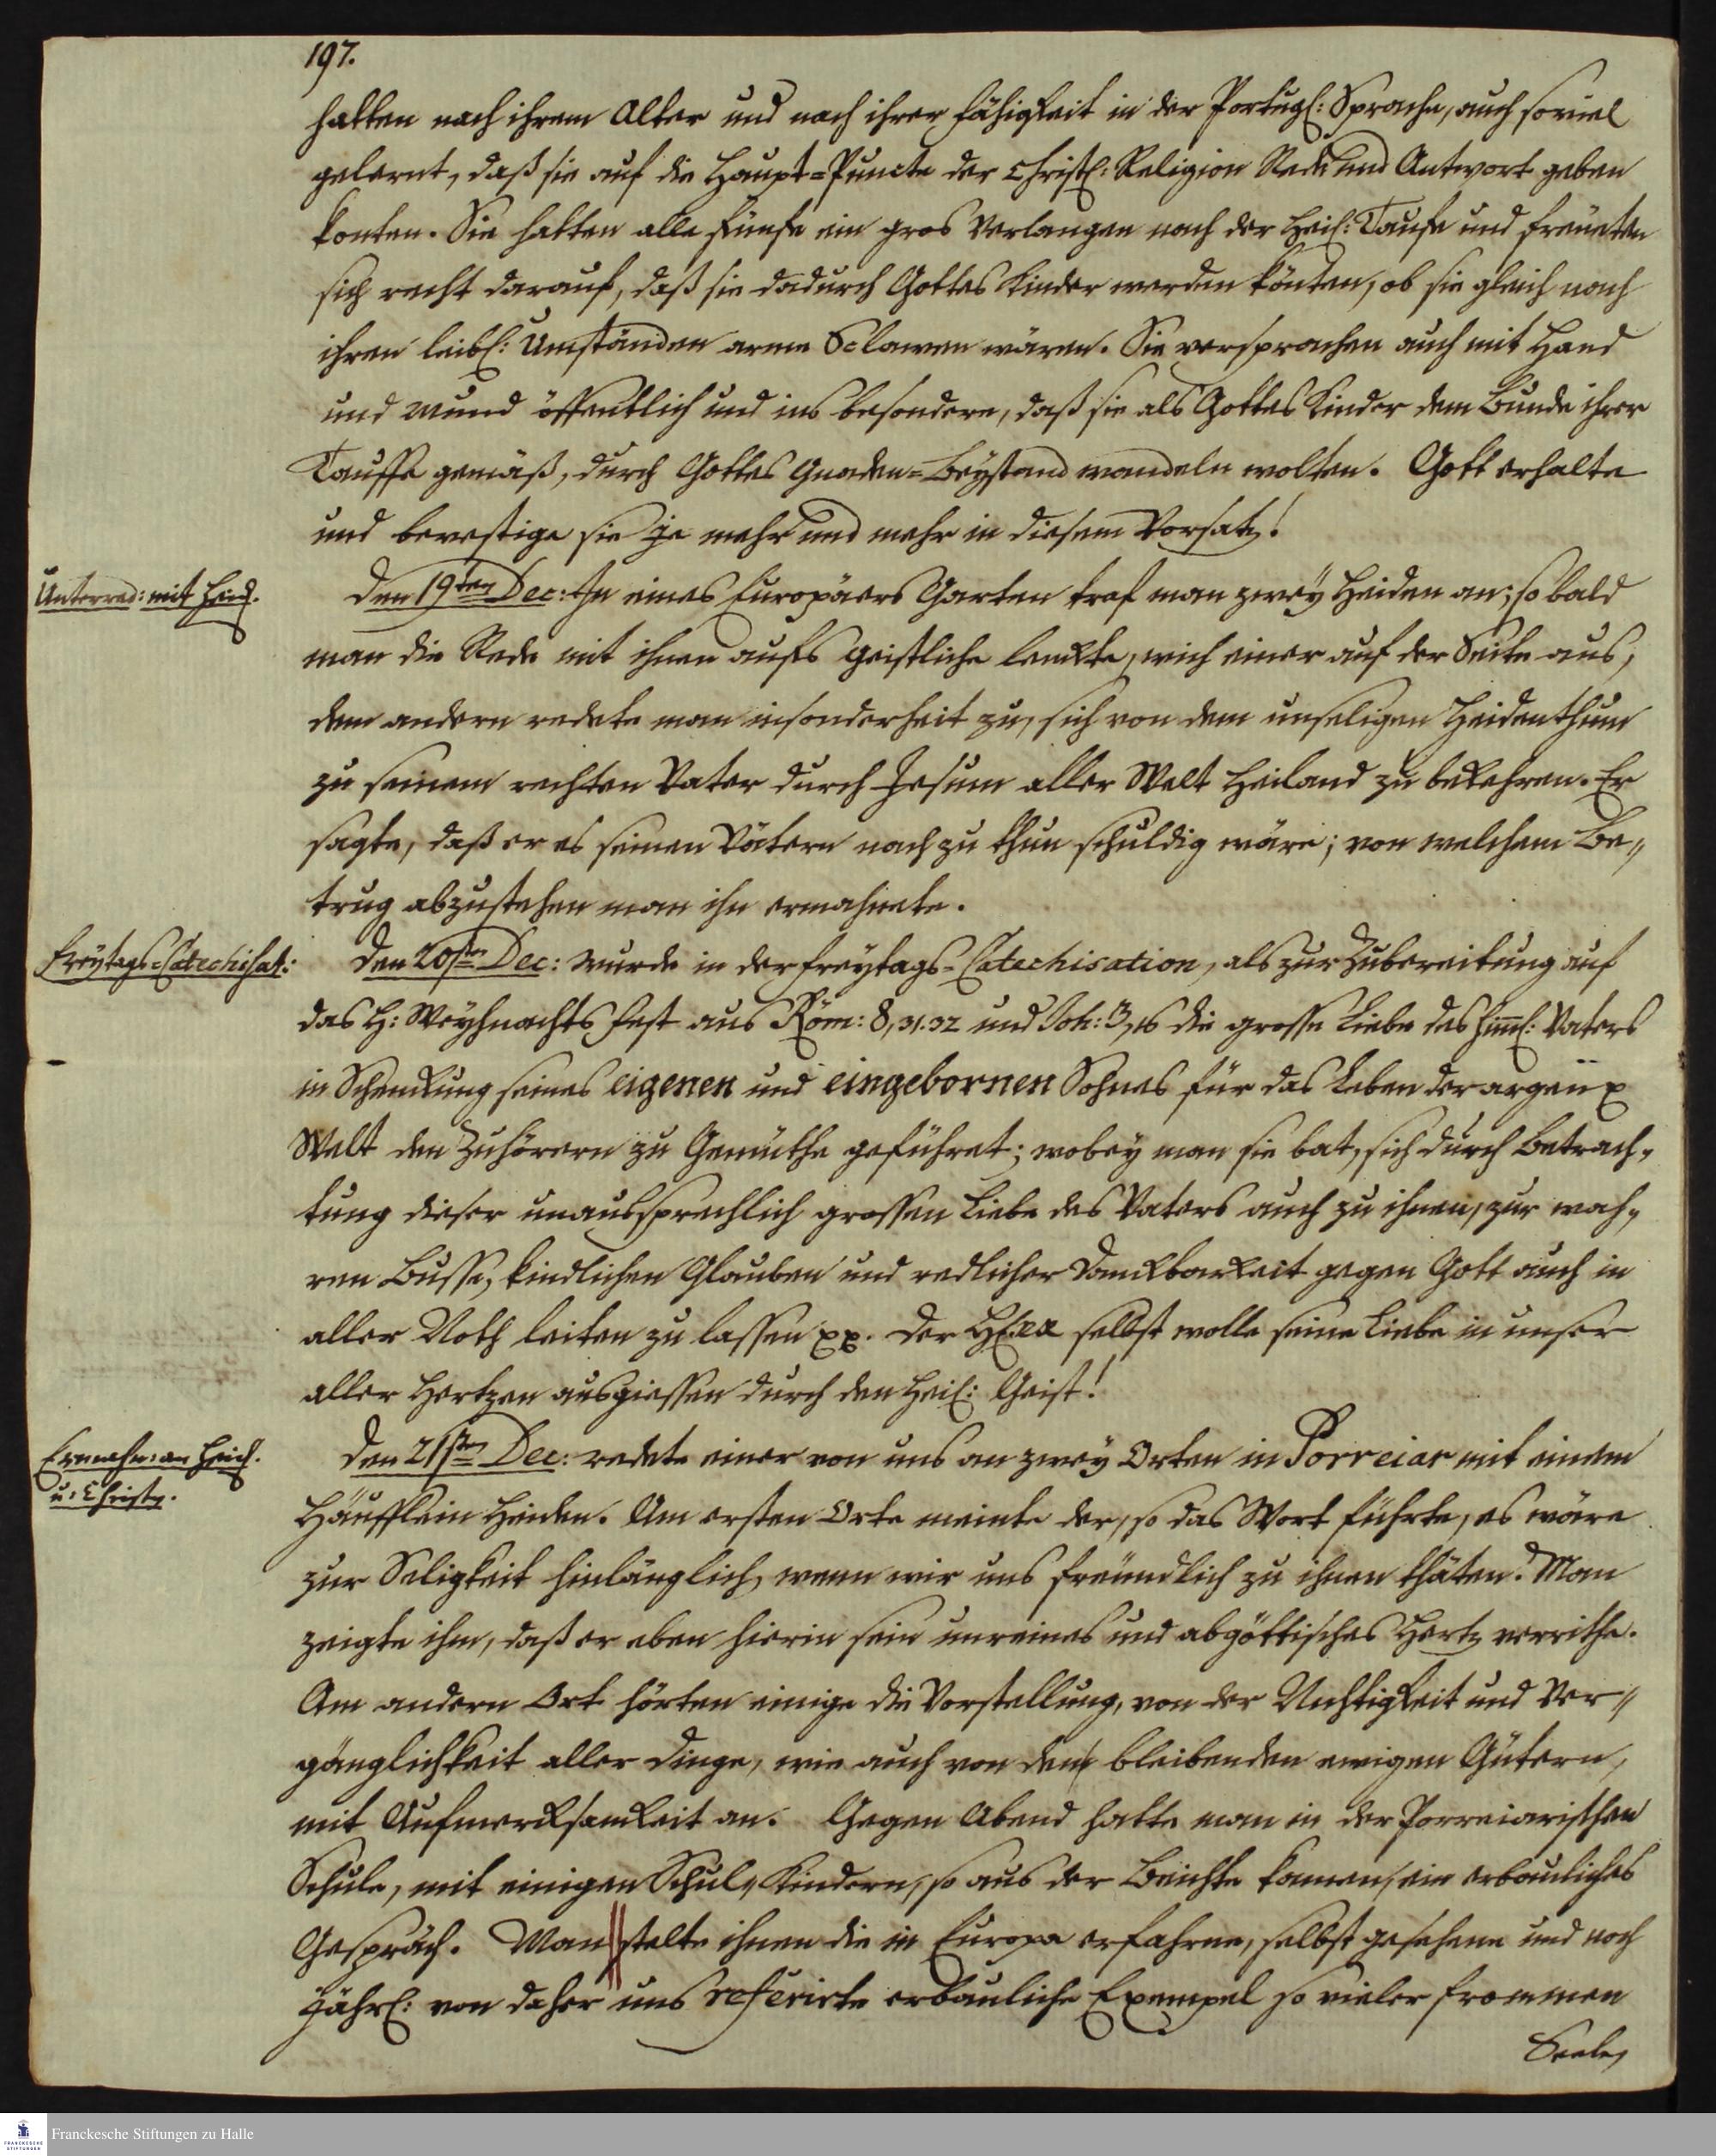 197.
hatten nach ihrem Alter und nach ihrer Fähigkeit in der Portugl: Sprache, auch soviel
gelernt, daß sie auf die Haupt=Puncte der Christl: Religion Rede und Antwort geben
konten. Sie hatten alle fünfe ein gros Verlangen nach der Heil: Taufe und freüeten
sich recht darauf, daß sie dadurch Gottes Kinder werden könten, ob sie gleich nach
ihren leibl: Umständen arme Sclawen wären. Sie versprachen auch mit Hand
und Mund öffentlich und ins besondere, daß sie als Gottes Kinder dem Bunde ihrer
Tauffe gemäß, durch Gottes Gnaden=Beystand wandeln wolten. Gott erhalte
und bevestige sie je mehr und mehr in diesem Vorsatz!
Unterred: mit Heid.
Den 19ten Dec: In eines Europäers Garten traf man zwey Heiden an; so bald
man die Rede mit ihnen aufs geistliche lenckte, wich einer auf der Seite aus,
dem andern redete man insonderheit zu, sich von dem unseligen Heidenthum
zu seinem rechten Vater durch Jesum aller Welt Heiland zu bekehren. Er
sagte, daß er es seinen Vätern nach zu thun schuldig wäre; von welchem Be=
trug abzustehen man ihn ermahnete.
Freytags=Catechisat:
Den 20sten Dec: wurde in der Freytags=Catechisation, als zur Zubereitung auf
das H: Weyhnachts Fest aus Röm: 8, 31.32 und Joh: 3, 16 die grosse Liebe des himml: Vaters
in Schenckung seines eigenen und eingebornen Sohnes für das Leben der argen
Welt den Zuhörern zu Gemüthe geführet; wobey man sie bat, sich durch Betrach=
tung dieser unaussprechlich grossen Liebe des Vaters auch zu ihnen, zur wah=
ren Busse, kindlichen Glauben und redlicher Danckbarkeit gegen Gott auch in
aller Noth leiten zu lassen pp. Der HErr selbst wolle seine Liebe in unser
aller Hertzen ausgiessen durch den Heil: Geist!
Ermahn: an Heid.
u: Christ.
Den 21sten Dec: redete einer von uns an zwey Orten in Porreiar mit einem
Häufflein Heiden. Am ersten Orte meinte der, so das Wort führte, es wäre
zur Seligkeit hinlänglich, wenn wir uns freündlich zu ihnen thäten. Man
zeigte ihm, daß er eben hierin sein unreines und abgöttisches Hertz verrithe.
Am andern Ort hörten einige die Vorstellung, von der Nichtigkeit und Ver=
gänglichkeit aller Dinge, wie auch von den bleibenden ewigen Gütern,
mit Aufmercksamkeit an. Gegen Abend hatte man in der Porreiarischen
Schule, mit einigen Schul=Kindern, so aus der Beichte kamen, ein erbauliches
Gespräch. Man stelte ihnen die in Europa erfahrne, selbst gesehene und noch
Jährl: von daher uns referirte erbauliche Exempel so vieler frommen
Seelen
Franckesche Stiftungen zu Halle